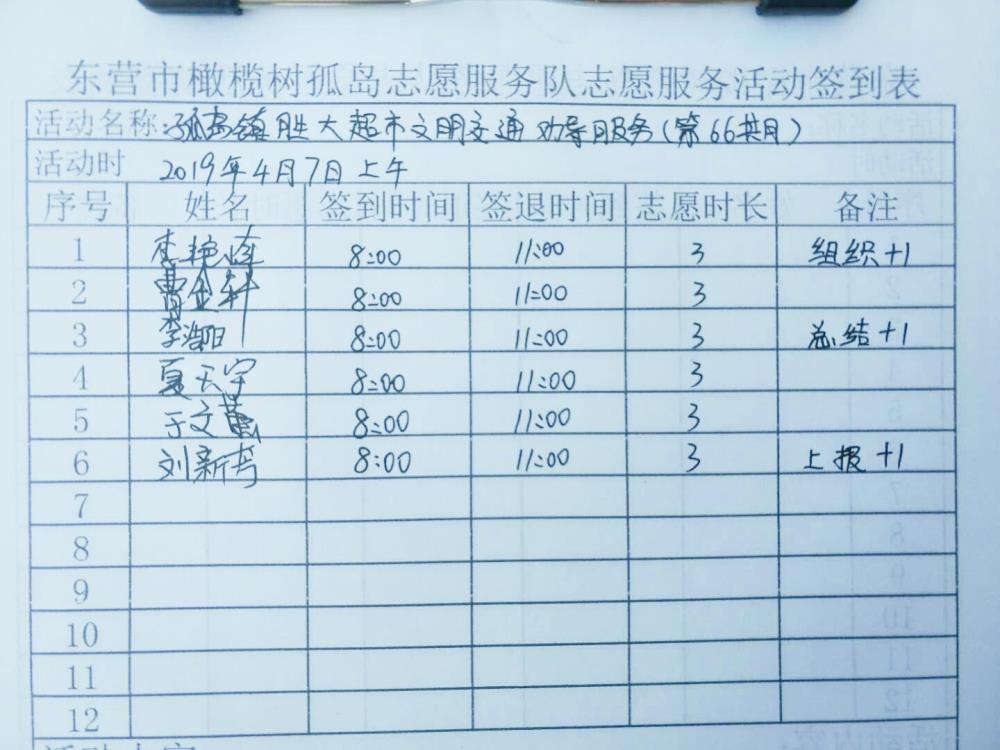 东营市橄榄树孤岛志愿服务队志愿服务活动签到表
活动名称:孤岛镇胜大超市文明交通劝导服务(第66期)
活动时 2019年4月7日上午
序号 姓名 签到时间 签退时间 志愿时长 备注
1 李艳莲 8:00 11:00 3 组织+1
2 曹金科 8:00 11:00 3
3 李浩阳 8:00 11:00 3 总结+1
4 夏天宇 8:00 11:00 3
5 于文 8:00 11:00 3
6 刘新 8:00 11:00 3 上报+1
7
8
9
10
11
12